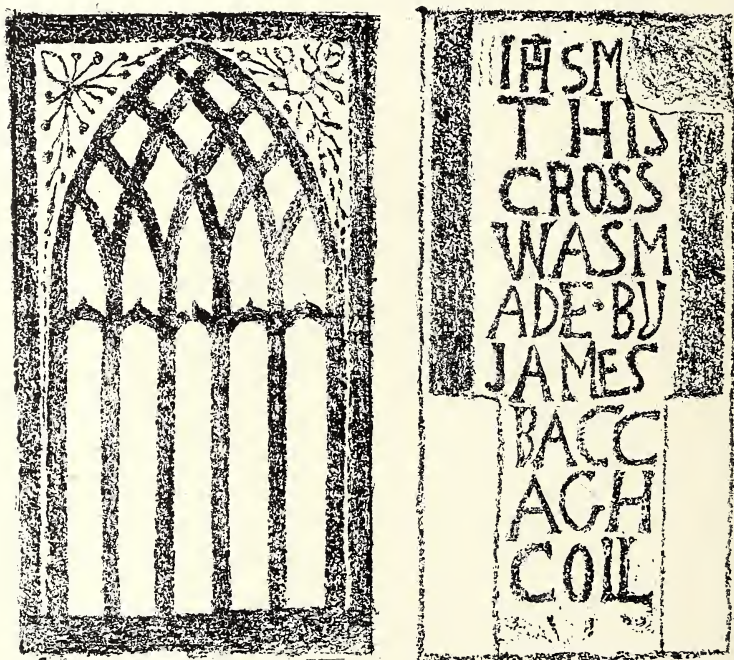 IHSM
THIS
CROSS
WASM
ADE·BU
JAMES
BACC
AGH
COIL